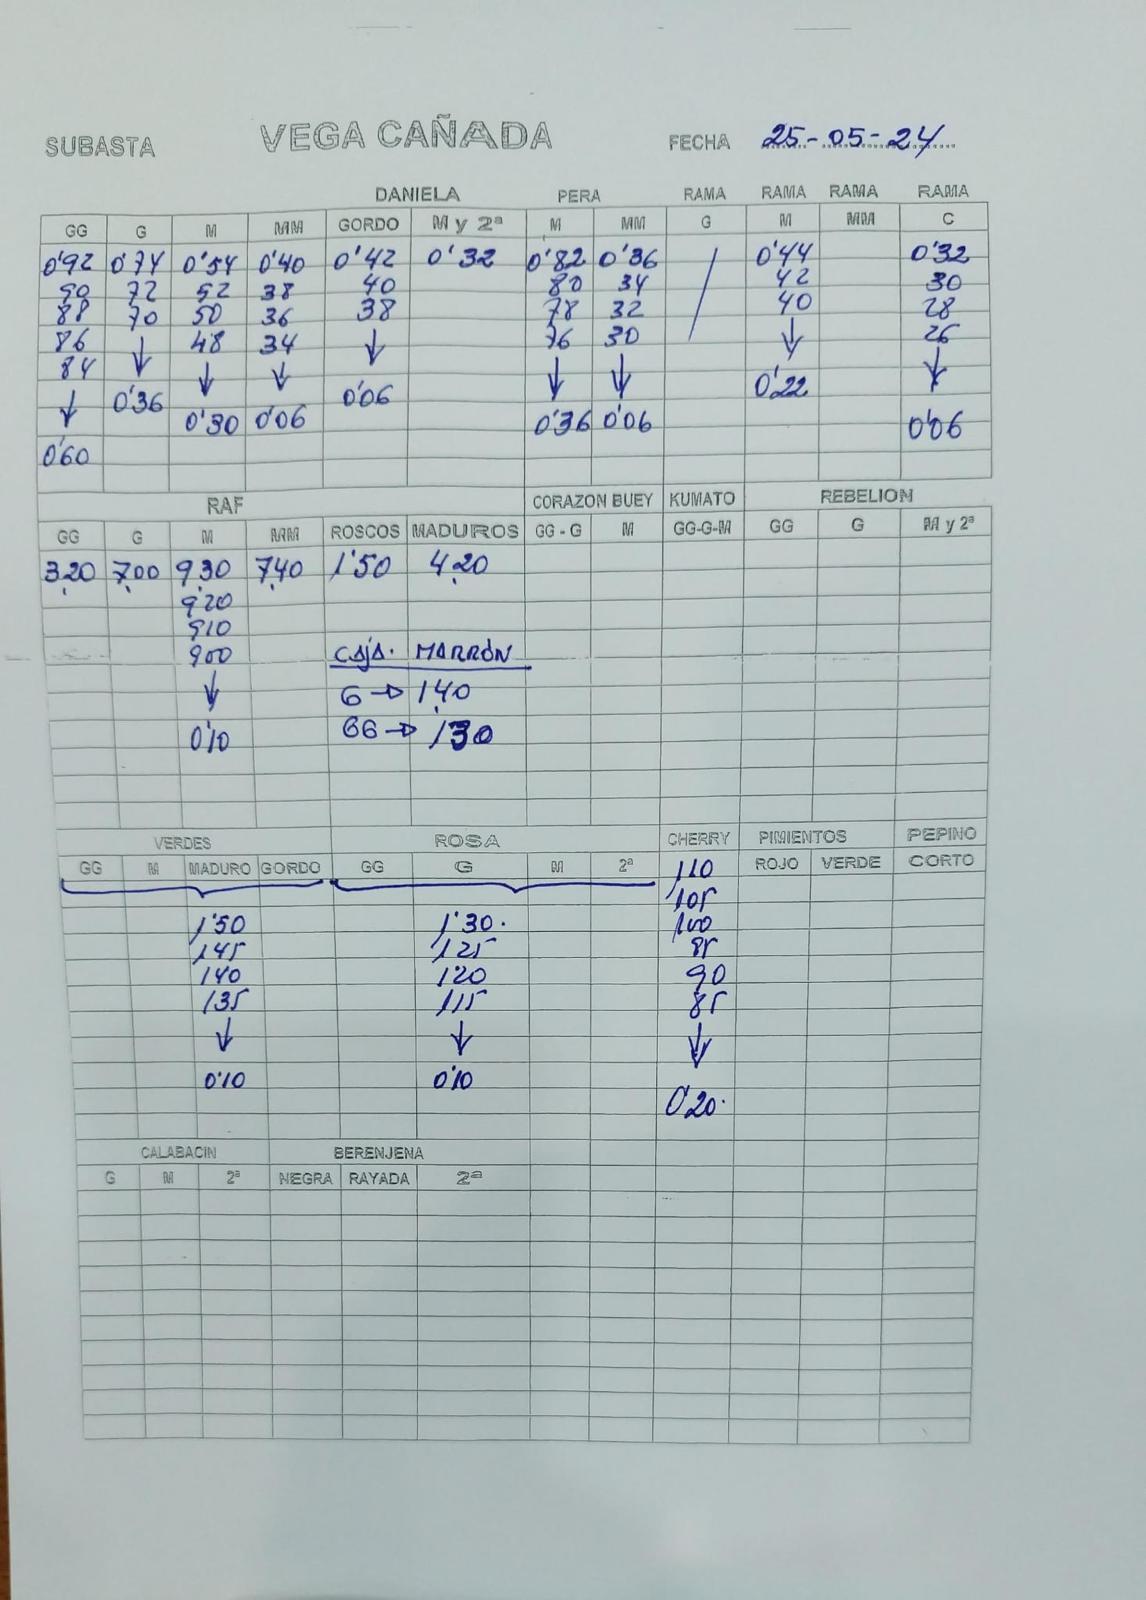 SUBASTA VEGA CAÑADA FECHA 25-05-24
DANIELA PERA RAMA RAMA RAMA RAMA
GG G M MM GORDO M y 2ª M MM G M MM C
0'92 0'74 0'54 0'40 0'42 0'32 0'82 0'36 0'44 0'32
90 72 52 38 40 80 34 42 30
88 70 50 36 38 78 32 40 28
86 48 34 76 30 26
84
0'36 0'30 0'06 0'06 0'36 0'06 0'22 0'06
0'60
RAF CORAZON BUEY KUMATO REBELION
GG G M MM ROSCOS MADUROS GG - G M GG-G-M GG G M y 2ª
3,20 7,00 9,30 7,40 1'50 4,20
920
910
900 CAJA. MARRÓN
G → 1,40
0'10 GG → 130
VERDES ROSA CHERRY PIMIENTOS PEPINO
GG M MADURO GORDO GG G M 2ª 110 ROJO VERDE CORTO
105
1'50 1'30. 100
145 125 85
140 120 90
135 115 85
0'10 0'10
0'20.
CALABACIN BERENJENA
G M 2ª NEGRA RAYADA 2ª